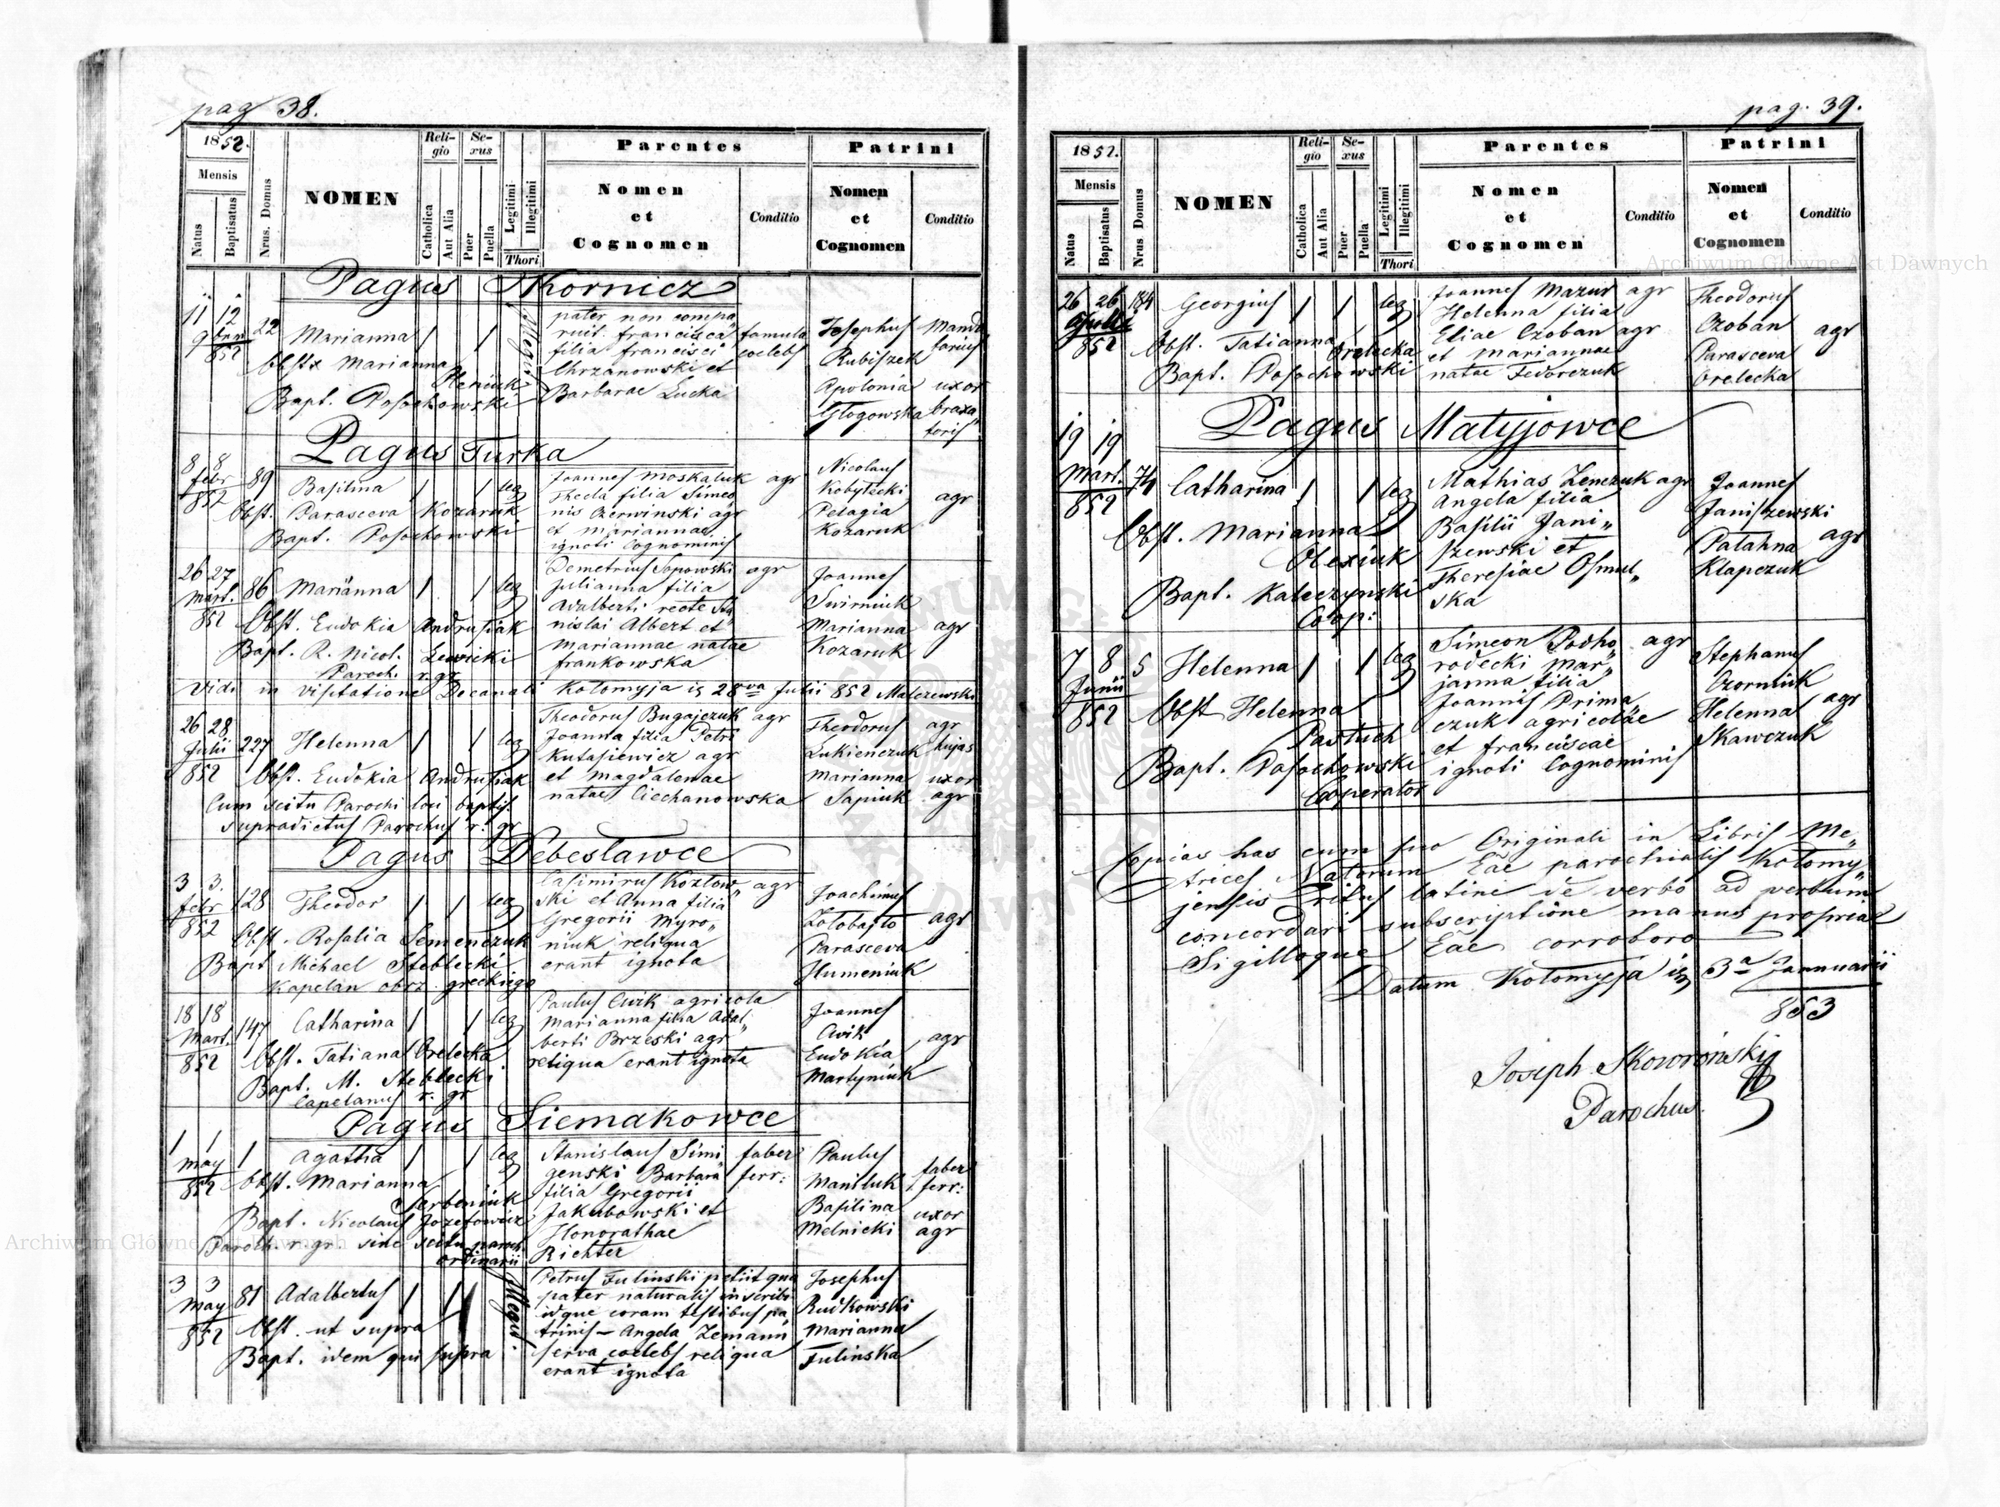 pag 38.
1852.
Mensis
Natus
Baptisatus
Nrus. Domus
NOMEN
Reli-
gio
Catholica
Aut Alia
Se-
xus
Puer
Puella
Legitimi
Illegitimi
Thori
Parentes
Nomen
et
Cognomen
Conditio
Patrini
Nomen
et
Cognomen
Conditio
Pagus Skornicz
11 12
9bris
852
22
Marianna 1 1
Obstx Marianna
Bapt. Posochowski
Illegit
pater non compa„
ruit. francisca famula
filia francisci coelebs
Chrzanowski et
Barbarae Lucka
Josephus Manda
Rubiszek tarius
Apolonia uxor
Głogowska braxa„
toris
Pagus Turka
8 8
febr
852
89
Basilina 1 1 leg
Obst. Parasceva Kozaruk
Bapt. Posochowski
Joannes Moskaluk agr
Thecla filia Simeo
nis Czerwinski agr
et Mariannae
ignoti Cognominis
Nicolaus
Kobylecki agr
Pelagia
Kozaruk
26 27
Mart.
852
86 Marianna 1 1 leg
Obst. Eudokia Andrusiak
Bapt. R. Nicol. Lewicki
Paroch. r. gr.
Demetrius Sopowski agr
Julianna filia
Adalberti recte Sta
nislai Albert et
Mariannae natae
frankowska
Joannes
Swirniuk
Marianna agr
Kozaruk
Vidi in visitatione Decanali Kołomyja is 28va Julii 852 Malczewski
26 28
Julii
852
227 Helenna 1 1 leg
Obst. Eudokia Andrusiak
Cum scitu Parochi loci baptis.
supradictus Parochus r. gr
Theodorus Bugajczuk agr
Joanna filia Petri
Kutasiewicz agr
et Magdalenae
natae Ciechanowska
Theodorus agr
Lukienczuk hujas
Marianna uxor
Sapiuk agr
Pagus Debesławce
3 3.
febr
852
128 Theodor 1 1 leg
Obst. Rosalia Semenczuk
Bapt Michael Steblecki
Kapelan obrz. greckiego
Casimirus Kozłow„ agr
ski et Anna filia
Gregorii Myro„
niuk reliqua
erant ignota
Joachimus
Zołobajło agr
Parasceva
Humeniuk
18 18
Mart.
852
147 Catharina 1 1 leg
Obst. Tatiana Orelecka
Bapt. M. Steblecki
Capelanus r. gr
Paulus Cwik agricola
Marianna filia Adal„
berti Brzeski agr
reliqua erant ignota
Joannes
Cwik agr
Eudokia
Martyniuk
Pagus Siemakowce
1 1
May
852
1 Agatha 1 1 leg
Obst. Marianna
Serbeniuk
Bapt. Nicolaus Jozefowicz
Paroch. r. gr. sine scitu paroch.
ordinarii
Stanislaus Simi faber
genski Barbara ferr:
filia Gregorii
Jakubowski et
Honorathae
Richter
Paulus faber
Maniluk ferr:
Basilina uxor
Melnicki agr
3 3
May
852
81 Adalbertus 1 1
Obst. ut supra
Bapt. idem qui supra
Illegit.
Petrus Tulinski petiit qua
pater naturalis inscribi
idque coram testibus pa
trinis – Angela Zemann
serva coelebs reliqua
erant ignota
Josephus
Rudkowski
Marianna
Tulinska
pag. 39.
1852.
Mensis
Natus
Baptisatus
Nrus Domus
NOMEN
Reli-
gio
Catholica
Aut Alia
Se-
xus
Puer
Puella
Legitimi
Illegitimi
Thori
Parentes
Nomen
et
Cognomen
Conditio
Patrini
Nomen
et
Cognomen
Conditio
26 26
852
184 Georgius 1 1 leg
Obst. Tatianna
Orelecka
Bapt. Posochowski
Joannes Mazur agr
Helenna filia
Eliae Czoban agr
et Mariannae
natae Fedorczuk
Theodorus
Czoban agr
Parasceva
Orelecka
Pagus Matyjowce
19 19
Mart.
852
74 Catharina 1 1 leg
Obst. Marianna
Olexiuk
Bapt. Kaleczynski
Coop:
Mathias Zenczuk agr
Angela filia
Basilii Jani„
szewski et
Theresiae Osmul„
ska
Joannes
Janiszewski
Patahna agr
Klapczuk
7 8
Junii
852
5 Helenna 1 1 leg
Obst Helenna
Pastuch
Bapt. Posochowski
Cooperator
Simeon Podho„ agr
rodecki Mar„
janna filia
Joannis Prima„
czuk agricolae
et franciscae
ignoti Cognominis
Stephanus
Czorniuk
Helenna agr
Skawczuk
Copias has cum suo Originali in Libris Me„
trices Natorum Eae parochialis Kołomy„
jensis Ritus latini de verbo ad verbum
concordari subscriptione manus propriae
Sigilloque Eae corroboro
Datum Kołomyja is 3a Jannuarii
853
Joseph Skowroński
Parochus.
Archiwum Główne Akt Dawnych
Archiwum Główne Akt Dawnych